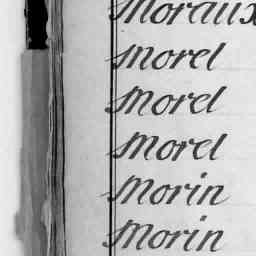 Moraux
Morel
Morel
Morel
Morin
Morin